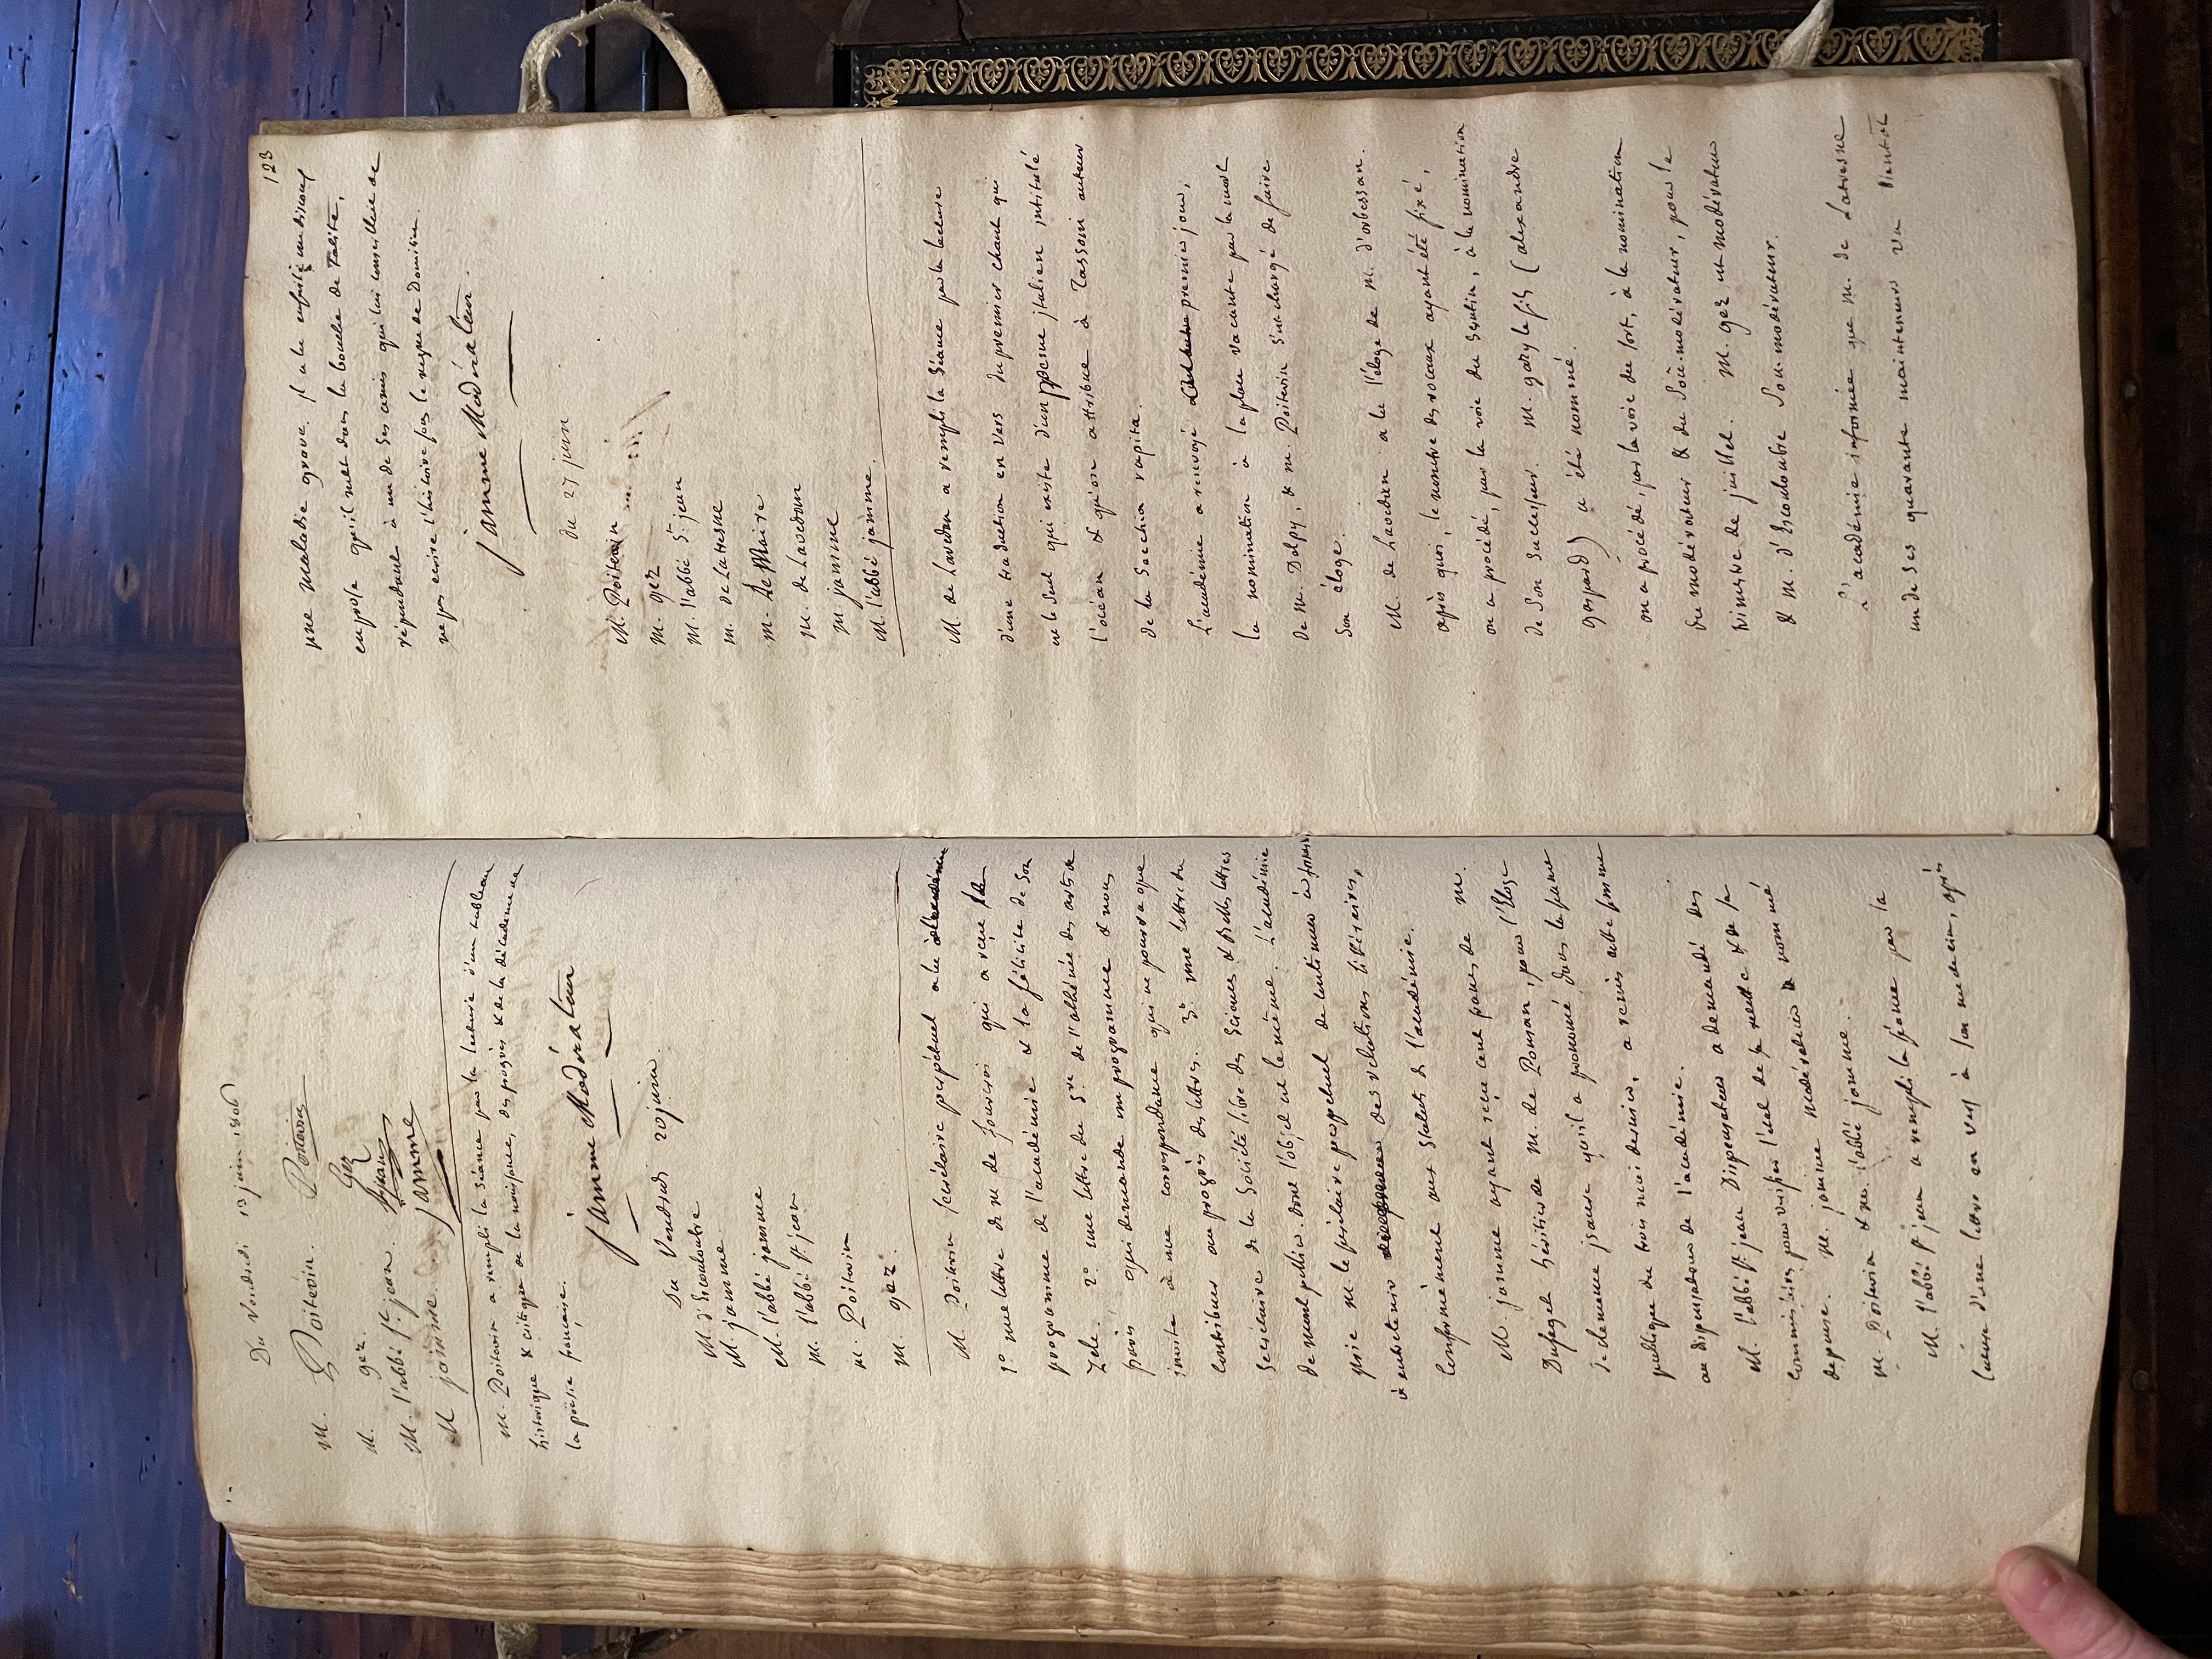 Du Vendredi 13 juin 1806
M. Poitevin. Poitevin
M. gez. Gez
M. l'abbé St jean. St jean
M jamme. Jamme
M. Poitevin a rempli la séance par la lecture d'un tableau
historique & critique de la naissance, des progrès & de la décadence de
la poësie française.
Jamme Modérateur
Du Vendredi 20 juin.
M d'Escouloubre
M. jamme.
M. l'abbé jamme
M. l'abbé St jean
M. Poitevin
M. gez.
M. Poitevin secrétaire perpétuel a lu
1° une lettre de m de fourcroi qui a reçu le
programme de l'académie & la félicite de son
zèle. 2° une lettre du Sre de l'athénée des arts de
paris qui demande un programme & nous
invite à une correspondance qui ne pourra que
contribuer au progrès des lettres. 3° une lettre du
secrétaire de la Société libre des Sciences & Belles lettres
de dont l'objet est le même. L'académie
prie m. le secrétaire perpétuel de continuer
à entretenir des relations littéraires,
conformément aux statuts de l'académie.
M. jamme ayant reçu cent francs de m.
Dufaget héritier de M. de Ponsan, pour l'Eloge
de clemence jsaure qu'il a prononcé dans la séance
publique du trois mai dernier, a remis cette somme
au dispensateur de l'académie.
M. l'abbé St jean Dispensateur a demandé des
commissaires pour vérifier l'état de la recette & de la
dépense. M. jamme modérateur a nommé
m. Poitevin & m. l'abbé jamme.
M. l'abbé St jean a rempli la séance par la
lecture d'une lettre en vers à son medecin, après
123
une maladie grave. jl a lu ensuite un discours
en prose qu'il met dans la bouche de Tacite,
répondant à un de ses amis qui lui conseille de
ne pas ecrire l'histoire sous le regne de Domitien.
Jamme Modérateur.
du 27 juin
M. Poitevin
M. gez
M. l'abbé St jean
M. de Latresne
M. Le Maire
M. de Lavedan
M jamme
M. l'abbé jamme.
M. de Lavedan a rempli la séance par la lecture
d'une traduction en vers du premier chant qui
est le seul qui existe d'un poesme jtalien jntitulé
l'océan & qu'on attribue à Tassoni auteur
de la Secchia rapita.
L'académie a renvoyé premier jour,
la nomination à la place vacante par la mort
de M. Delpy, & m. Poitevin s'est chargé de faire
son éloge.
M. de Lavedan a lu l'éloge de m. d'orbessan.
après quoi, le nombre des vocaux ayant été fixé,
on a procédé, par la voie du scrutin, à la nomination
de son successeur. M. gary le fils (alexandre
gaspard) a été nommé.
on a procédé, par la voie du sort, à la nomination
de modérateur & du Sous-modérateur, pour le
trimestre de juillet. M. gez est modérateur
& M. d'Escouloubre Sous-modérateur.
L'académie informée que M. de Latresne
un de ses quarante mainteneurs va bientôt